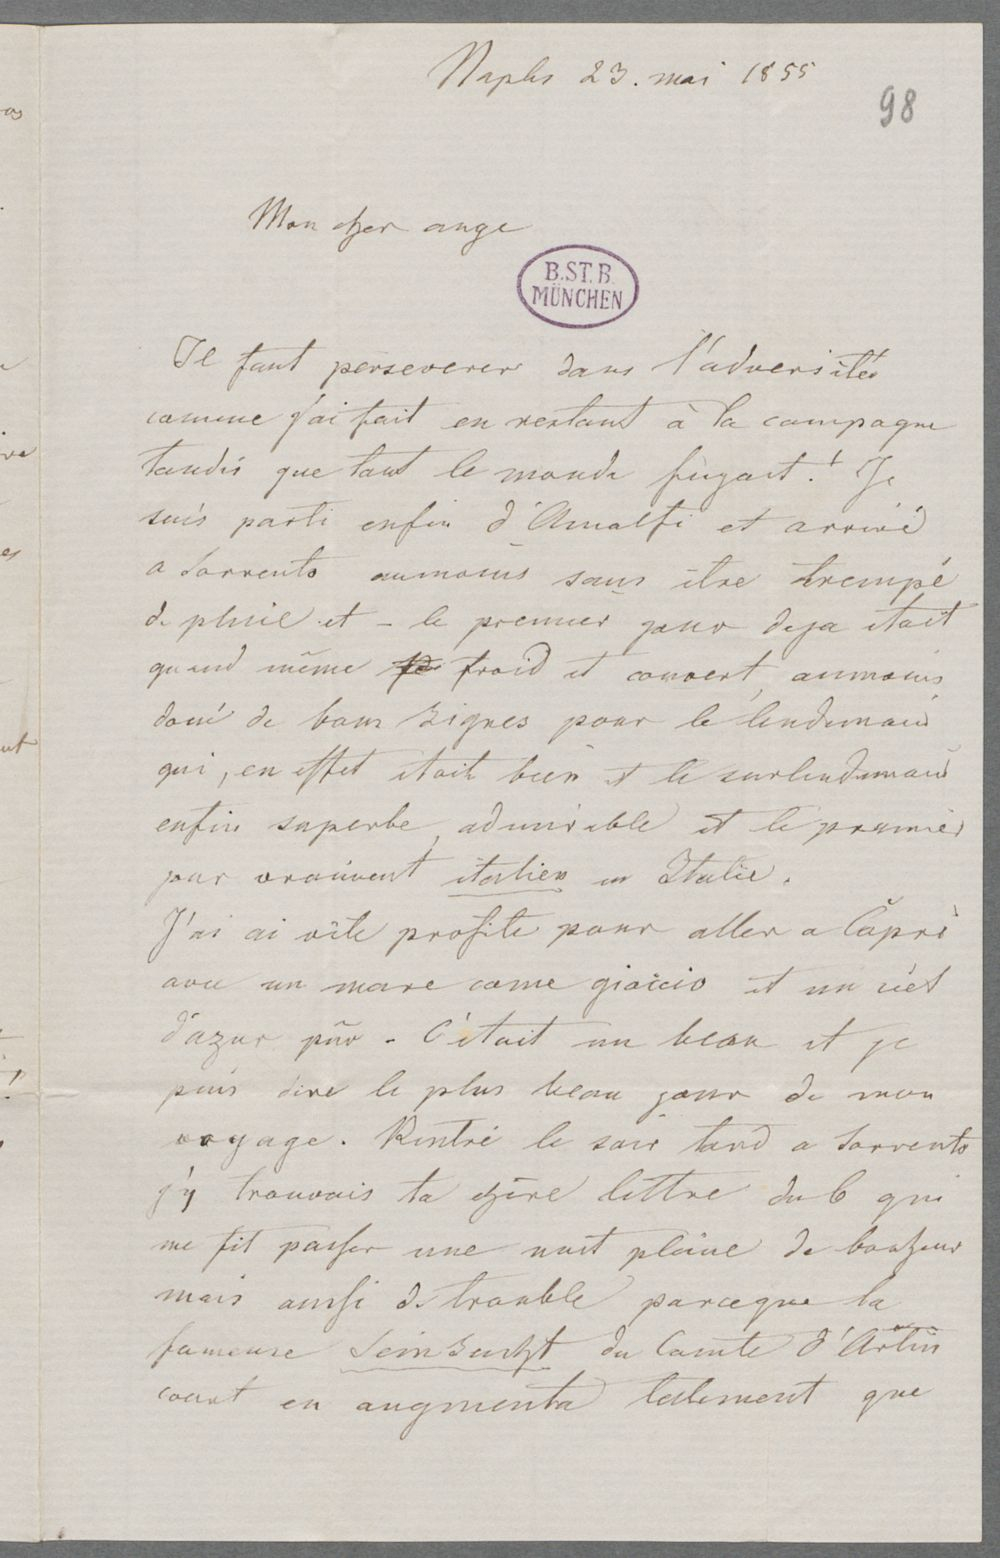 Naples 23. mai 1855
98
Mon cher ange
B.ST.B.
MÜNCHEN
Il faut perseverer dans l'adversité
comme j'ai fait en restant à la campagne
tandis que tout le monde fuyait! Je
suis parti enfin d'Amalfi et arrivé
a Sorrento aumoins sans être trempé
de pluie et – le premier jour deja était
quand même froid et couvert, aumoins
doué de bons signes pour le lendemain
qui, en effet était bien et le surlendemain
enfin superbe, admirable et le premier
jour vraiment italien en Italie.
J'ai ai vite profité pour aller a Capri
avec un mare come giaccio et un ciel
d'azur pur – C'était un beau et je
puis dire le plus beau jour de mon
voyage. Rentré le soir tard a Sorrento
j'y trouvais ta chère lettre du 6 qui
me fit passer une nuit pleine de bonheur
mais aussi de trouble parceque la
fameuse Seinsucht du Comte d'Arlin
court en augmenta tellement que